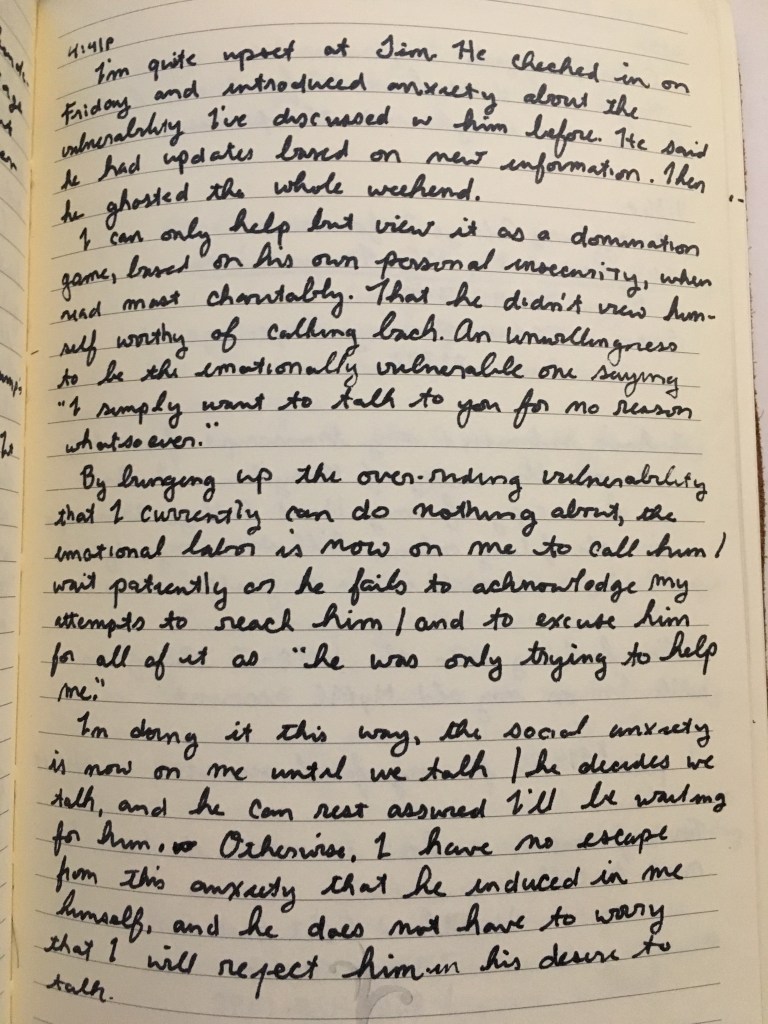 4:41P
I'm quite upset at Jim. He checked in on
Friday and introduced anxiety about the
vulnerability I've discussed w him before. He said
he had updates based on new information. Then
he ghosted the whole weekend.
I can only help but view it as a domination
game, based on his own personal insecurity, when
read most charitably. That he didn't view him-
self worthy of calling back. An unwillingness
to be the emotionally vulnerable one saying
"I simply want to talk to you for no reason
whatsoever."
By bringing up the over-riding vulnerability
that I currently can do nothing about, the
emotional labor is now on me to call him /
wait patiently as he fails to acknowledge my
attempts to reach him / and to excuse him
for all of it as "he was only trying to help
me."
In doing it this way, the social anxiety
is now on me until we talk / he decides we
talk, and he can rest assured I'll be waiting
for him. Otherwise, I have no escape
from this anxiety that he induced in me
himself, and he does not have to worry
that I will reject him in his desire to
talk.